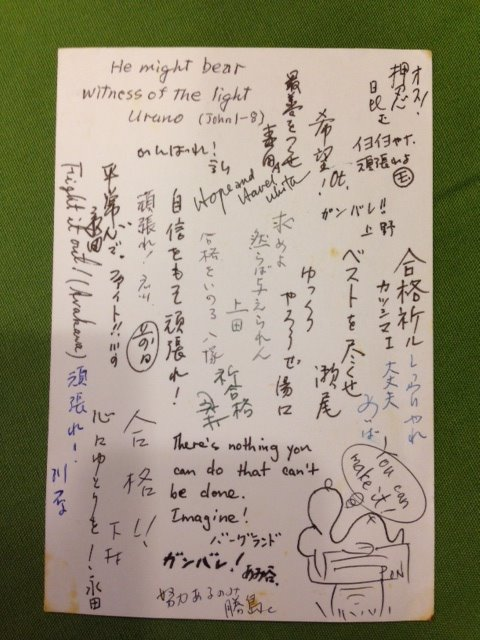 He might bear
witness of the light
Urano (John 1-8)
オス!
押忍
日比む
イヨイヨヤナ.
頑張れよ
希望!
最善をつくせ
がんばれ!
Hope and
ガンバレ!!
上野
合格祈ル
カツシマエ
しっかりやれ
大丈夫
ベストを尽くせ
瀬尾
ゆっくり
やろうぜ 湯口
求めよ
然らば与えられん
上田
合格をいのる 八塚
祈合格
自信をもって頑張れ!
頑張れ!
平常心で、ファイト!!
永田
Fight it out! (Arakawa)
頑張れ!
合格!!
心にゆとりを! 永田
There's nothing you
can do that can't
be done.
Imagine!
バーグランド
ガンバレ!
努力あるのみ
勝島
You can
make it!
PEN